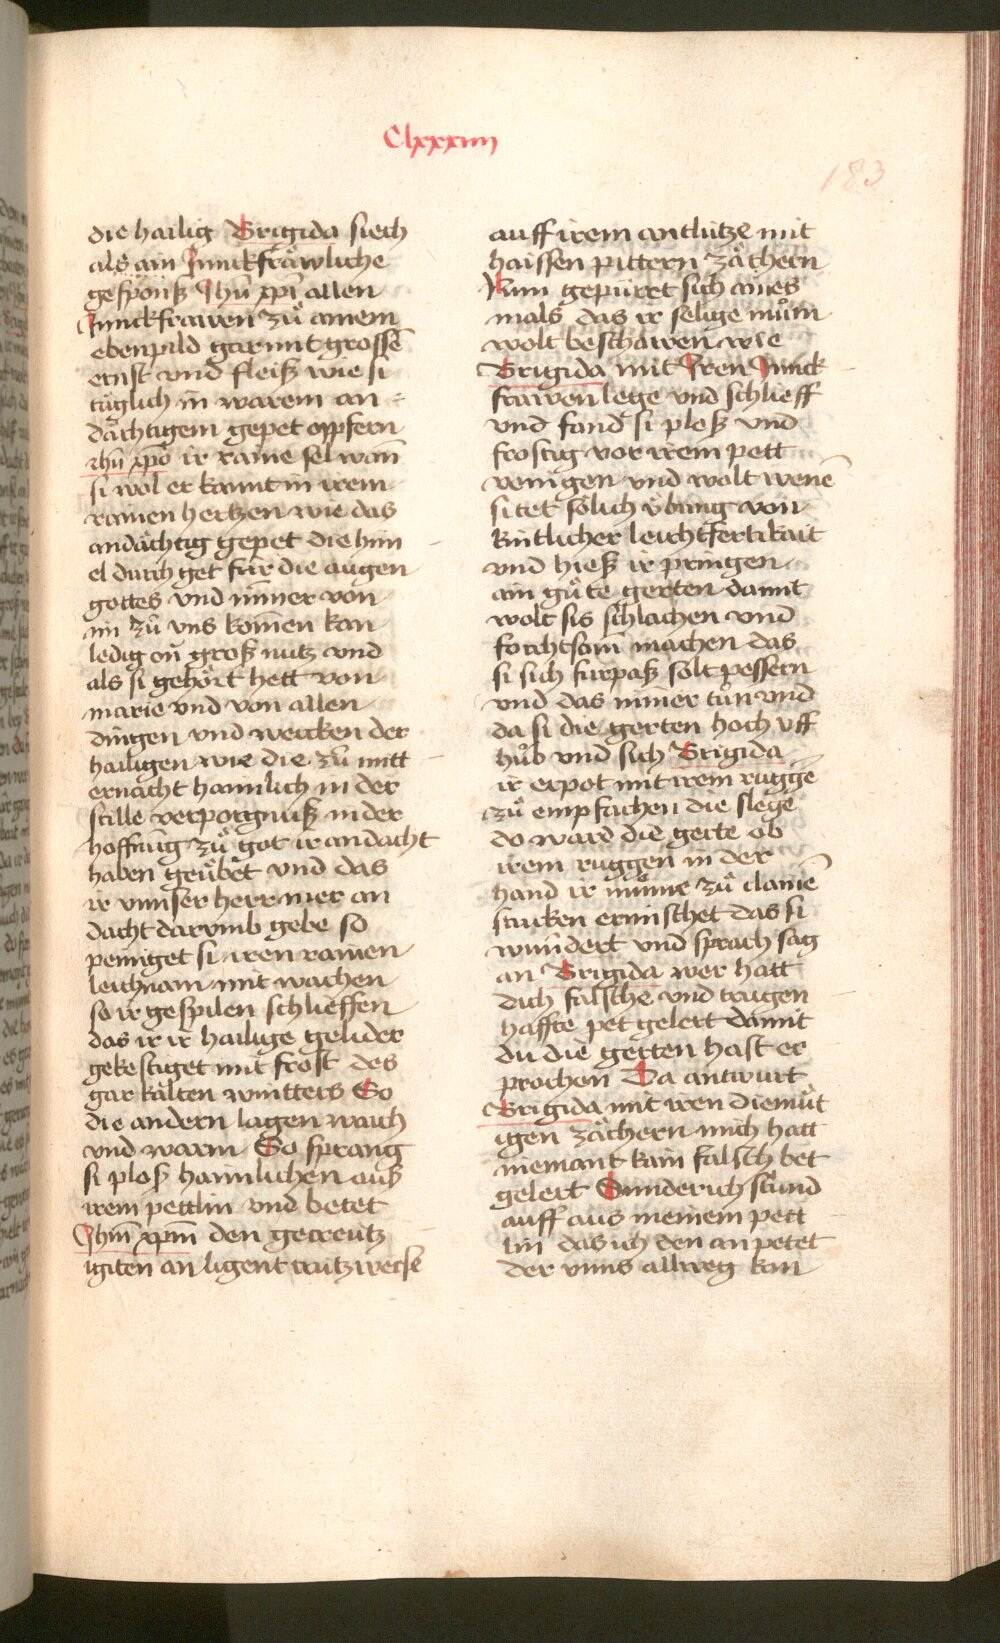 Clxxxiiii
183
die hailig Brigida siech
als ain Junckfräwliche
gesponß Jhū xpī allen
Junckfrawen zů ainem
ebenpild gar mit grossē
ernst vnd fleiß wie si
täglich in warem an
dächtigem gepet opfern
Jhū xpō ir raine sel wan̄
si wol erkannt in irem
rainen hertzen wie das
andächtig gepet die him
el durch get für die augen
gottes vnd nim̄er von
im zů vns kom̄en kan
ledig on̄ groß nutz vnd
als si gehört hett von
marie vnd von allen
dingen vnd wercken der
hailigen wie die zů mitt
ernacht haimlich in der
stille verporgnuß in der
hoffnūg zů got ir andacht
haben geübet vnd das
ir vnnser herr mer an
dacht darvmb gebe so
peiniget si iren rainen
leichnam mit wachen
so ir gespilen schlieffen
das ir ir hailige gelider
gekestiget mit frost des
gar kalten wintters So
die andern lagen waich
vnd warm So sprang
si ploß haimlichen aus
irem pettlin vnd betet
Jhm̄ xpm̄ den gecreutz
igiten an ligent creutzweise
auff irem antlütze mit
haissen pittern zächern
Nun gepüret sich aines
mals das ir selige mům
wolt beschawen wie
Brigida mit Jren Junck
frawen lege vnd schlieff
vnd fand si ploß vnd
frostig vor irem pett
venigen vnd wolt wenē
si tet sölich übung von
kintlicher leichtfertikait
vnd hieß ir pringen
ain gůte gerten damit
wolt sis schlachen vnd
forchtsom machen das
si sich fürpaß solt pessern
vnd das nim̄er tůn vnd
da si die gerten hoch vff
hůb vnd sich Brigida
ir erpot mit irem rugge
zů empfachen die slege
do ward die gerte ob
irem ruggen in der
hand ir můme zů clainē
stucken ermischet das si
wundert vnd sprach sag
an Brigida wer hatt
dich falsche vnd trugen
haffte pet gelert damit
du die gerten hast er
prochen Da antwurt
Brigida mit iren diemüt
igen zächern mich hatt
niemant kain falsch bet
gelert Sunder ich stund
auff aus meinem pett
lin das ich den an petet
der vnns allweg kan